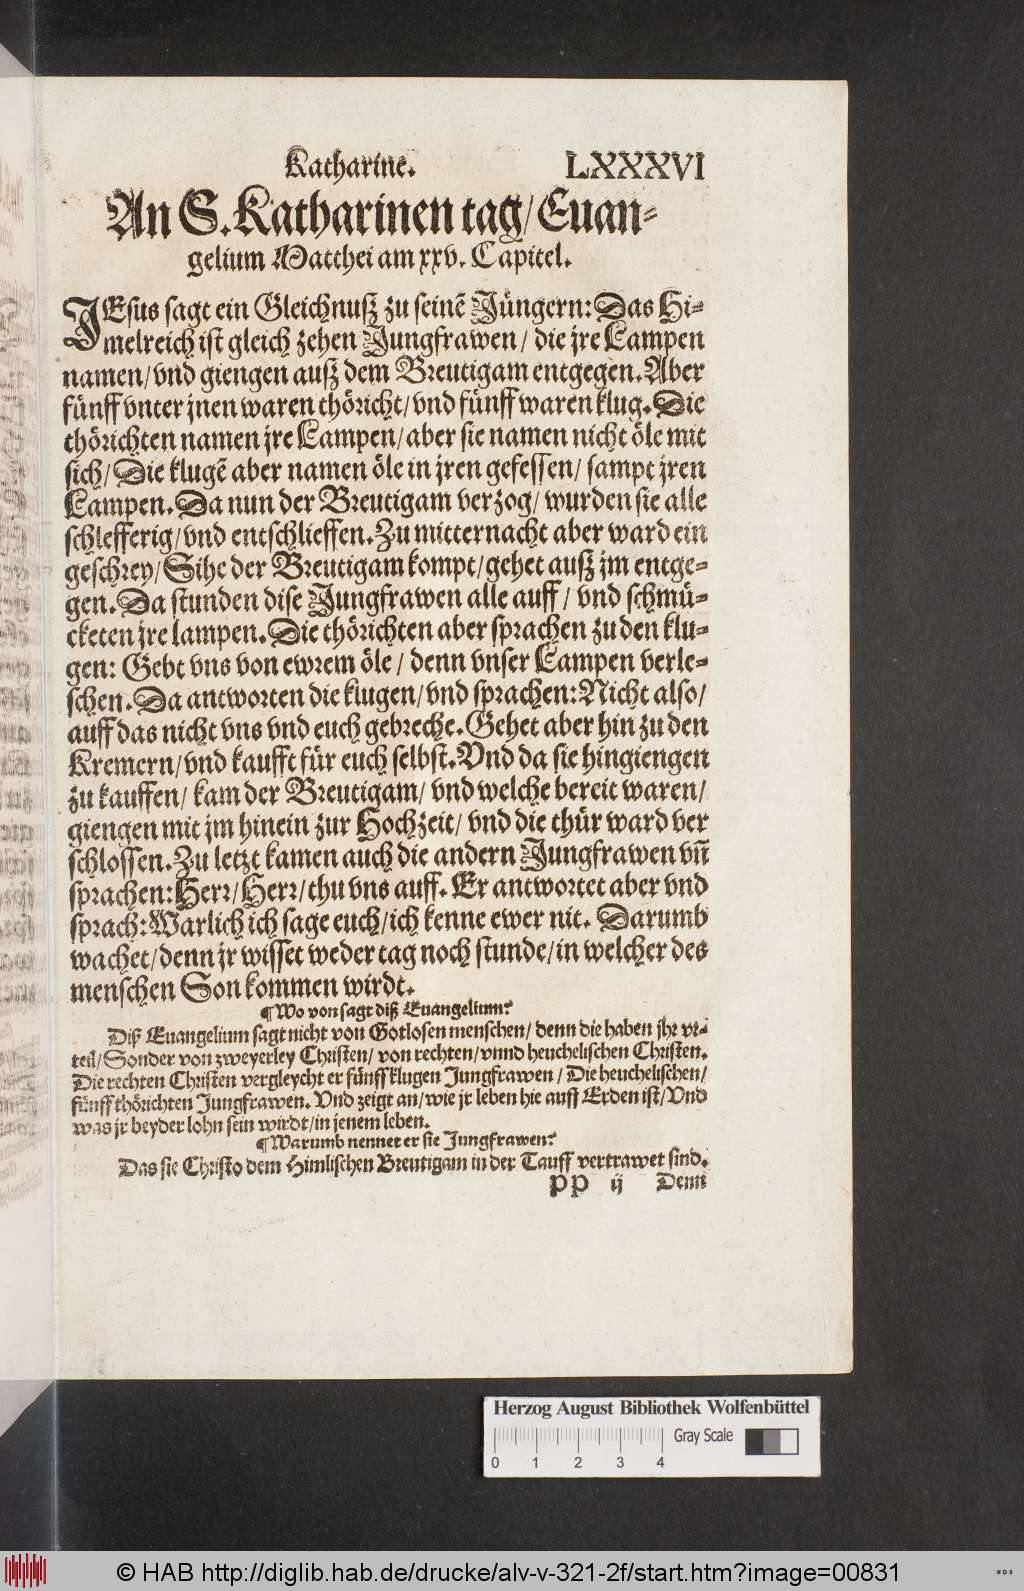 Katharine. LXXXVI
An S. Katharinen tag/ Euan-
gelium Matthei am xxv. Capitel.
JEsus sagt ein Gleichnuß zu seinē Jüngern: Das Hi-
melreich ist gleich zehen Jungfrawen/ die jre Lampen
namen/ vnd giengen auß dem Breutigam entgegen. Aber
fünff vnter jnen waren thöricht/ vnd fünff waren klug. Die
thörichten namen jre Lampen/ aber sie namen nicht öle mit
sich/ Die klugē aber namen öle in jren gefessen/ sampt jren
Lampen. Da nun der Breutigam verzog/ wurden sie alle
schlefferig/ vnd entschlieffen. Zu mitternacht aber ward ein
geschrey/ Sihe der Breutigam kompt/ gehet auß jm entge-
gen. Da stunden dise Jungfrawen alle auff/ vnd schmü-
cketen jre lampen. Die thörichten aber sprachen zu den klu-
gen: Gebt vns von ewrem öle/ denn vnser Lampen verle-
schen. Da antworten die klugen/ vnd sprachen: Nicht also/
auff das nicht vns vnd euch gebreche. Gehet aber hin zu den
Kremern/ vnd kaufft für euch selbst. Vnd da sie hingiengen
zu kauffen/ kam der Breutigam/ vnd welche bereit waren/
giengen mit jm hinein zur Hochzeit/ vnd die thür ward ver
schlossen. Zu letzt kamen auch die andern Jungfrawen vn̄
sprachen: Herr/ Herr/ thu vns auff. Er antwortet aber vnd
sprach: Warlich ich sage euch/ ich kenne ewer nit. Darumb
wachet/ denn jr wisset weder tag noch stunde/ in welcher des
menschen Son kommen wirdt.
¶ Wo von sagt diß Euangelium?
Diß Euangelium sagt nicht von Gotlosen menschen/ denn die haben jhr vr-
teil/ Sonder von zweyerley Christen/ von rechten/ vnnd heuchelischen Christen.
Die rechten Christen vergleycht er fünff klugen Jungfrawen/ Die heuchelischen/
fünff thörichten Jungfrawen. Vnd zeigt an/ wie jr leben hie auff Erden ist/ Vnd
was jr beyder lohn sein wirdt/ in jenem leben.
¶ Warumb nennet er sie Jungfrawen?
Das sie Christo dem Himlischen Breutigam in der Tauff vertrawet sind.
PP ij Denn
Herzog August Bibliothek Wolfenbüttel
Gray Scale
0 1 2 3 4
© HAB http://diglib.hab.de/drucke/alv-v-321-2f/start.htm?image=00831